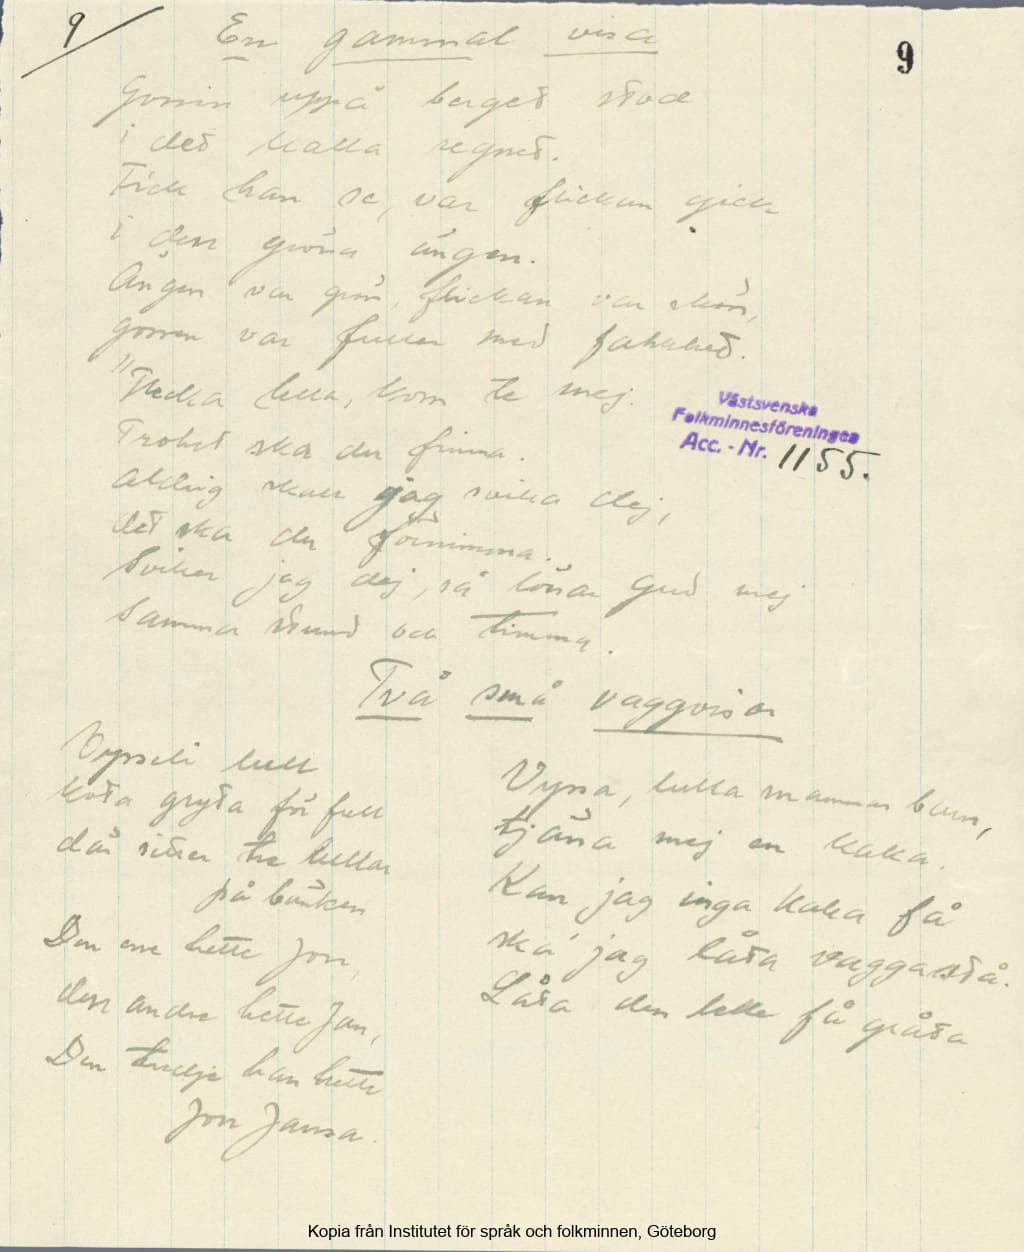 9
En gammal visa
9
Gossin uppå berget stod
i det kalla regnet.
Fick han se, var flickan gick
i den gröna ängen.
Ängen var grön, flickan var skön,
gossen var fuller med falskhet.
"Flecka lella, kom te mej.
Trohet ska du finna.
aldrig skall jag svika dej,
det ska du förnimma.
Sviker jag dej, så lönar Gud mej
samma stund och timma.
Västsvenska
Folkminnesföreningen
Acc. - Nr. 1155.
Två små vaggvisor
Vysseli lull
koka gryta för full
där sitter tre lullar
på bänken
Den ene hette Jon,
den andre hette Jan,
Den tredje han hette
Jon Jansa.
Vyssa, lulla mammas barn,
tjäna mej en kaka.
Kan jag inga kaka få
ska' jag låta vagga stå.
Låta den lelle få gråta
Kopia från Institutet för språk och folkminnen, Göteborg